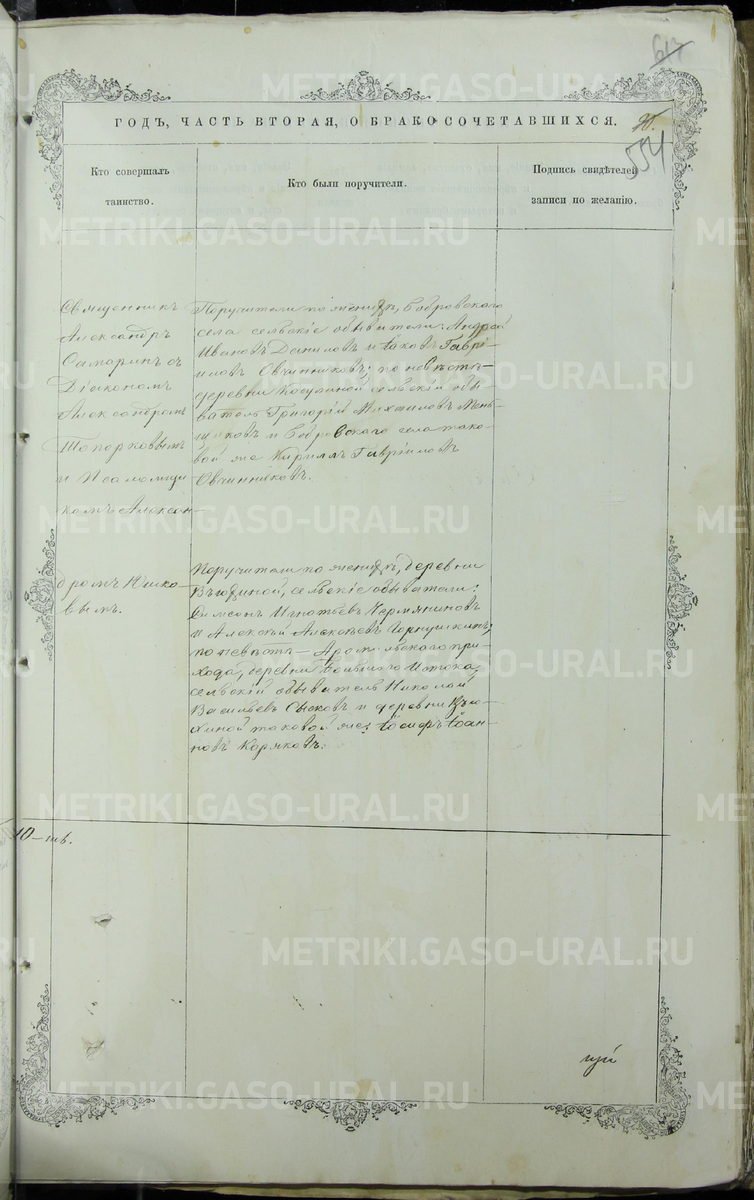 617
ГОДЪ, ЧАСТЬ ВТОРАЯ, О БРАКОСОЧЕТАВШИХСЯ.
554
Кто совершалъ
таинство.
Кто были поручители.
Подпись свидѣтелей
записи по желанію.
Священникъ
Александръ
Самаринъ съ
Діакономъ
Александромъ
Топорковымъ
и Псаломщи
комъ Алексан-
дромъ
вымъ.
Поручители по женихѣ, Бобровскаго
села сельскіе обыватели: Андрей
Ивановъ Даниловъ и Іаковъ Гаврі-
иловъ Овчинниковъ; по невѣстѣ
деревни Косулиной сельскій обы
ватель Григорій Михаиловъ Мень
щиковъ и Бобровскаго села тако
вой же Кириллъ Гавріиловъ
Овчинниковъ.
Поручители по женихѣ, деревни
сельскіе обыватели:
Симеонъ Игнатьевъ
и Алексѣй Алексѣевъ
по невѣстѣ — Арамильскаго при-
хода, деревни Большаго Истока,
сельскій обыватель Николай
Васильевъ и деревни
таковой же Іосифъ Іоан-
новъ Коряковъ.
METRIKI.GASO-URAL.RU